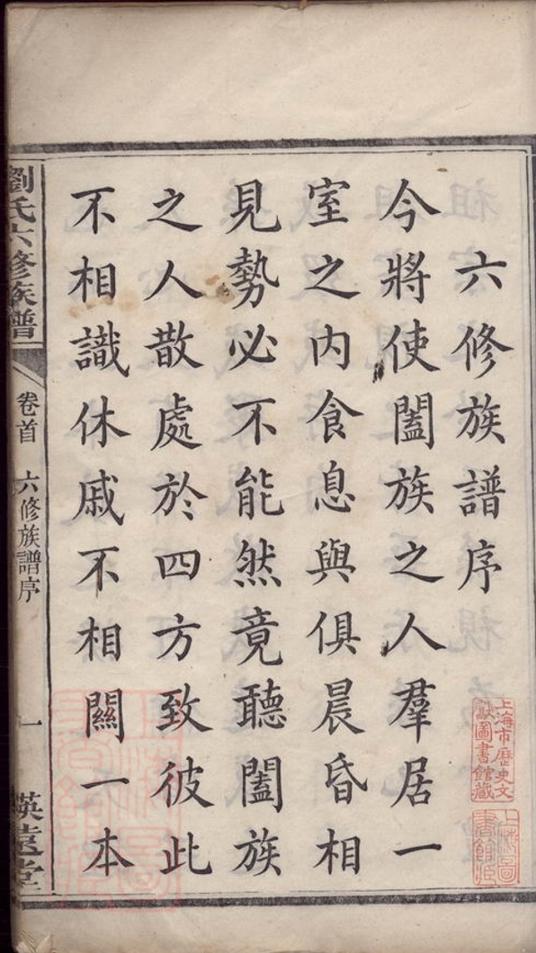 六修族譜序
今將使闔族之人羣居一
室之内食息與俱晨昏相
見勢必不能然竟聽闔族
之人散處於四方致彼此
不相識休戚不相關一本
劉氏六修族譜
卷首
六修族譜序
一
上海市歷史文
獻圖書館藏
上海圖
書館藏